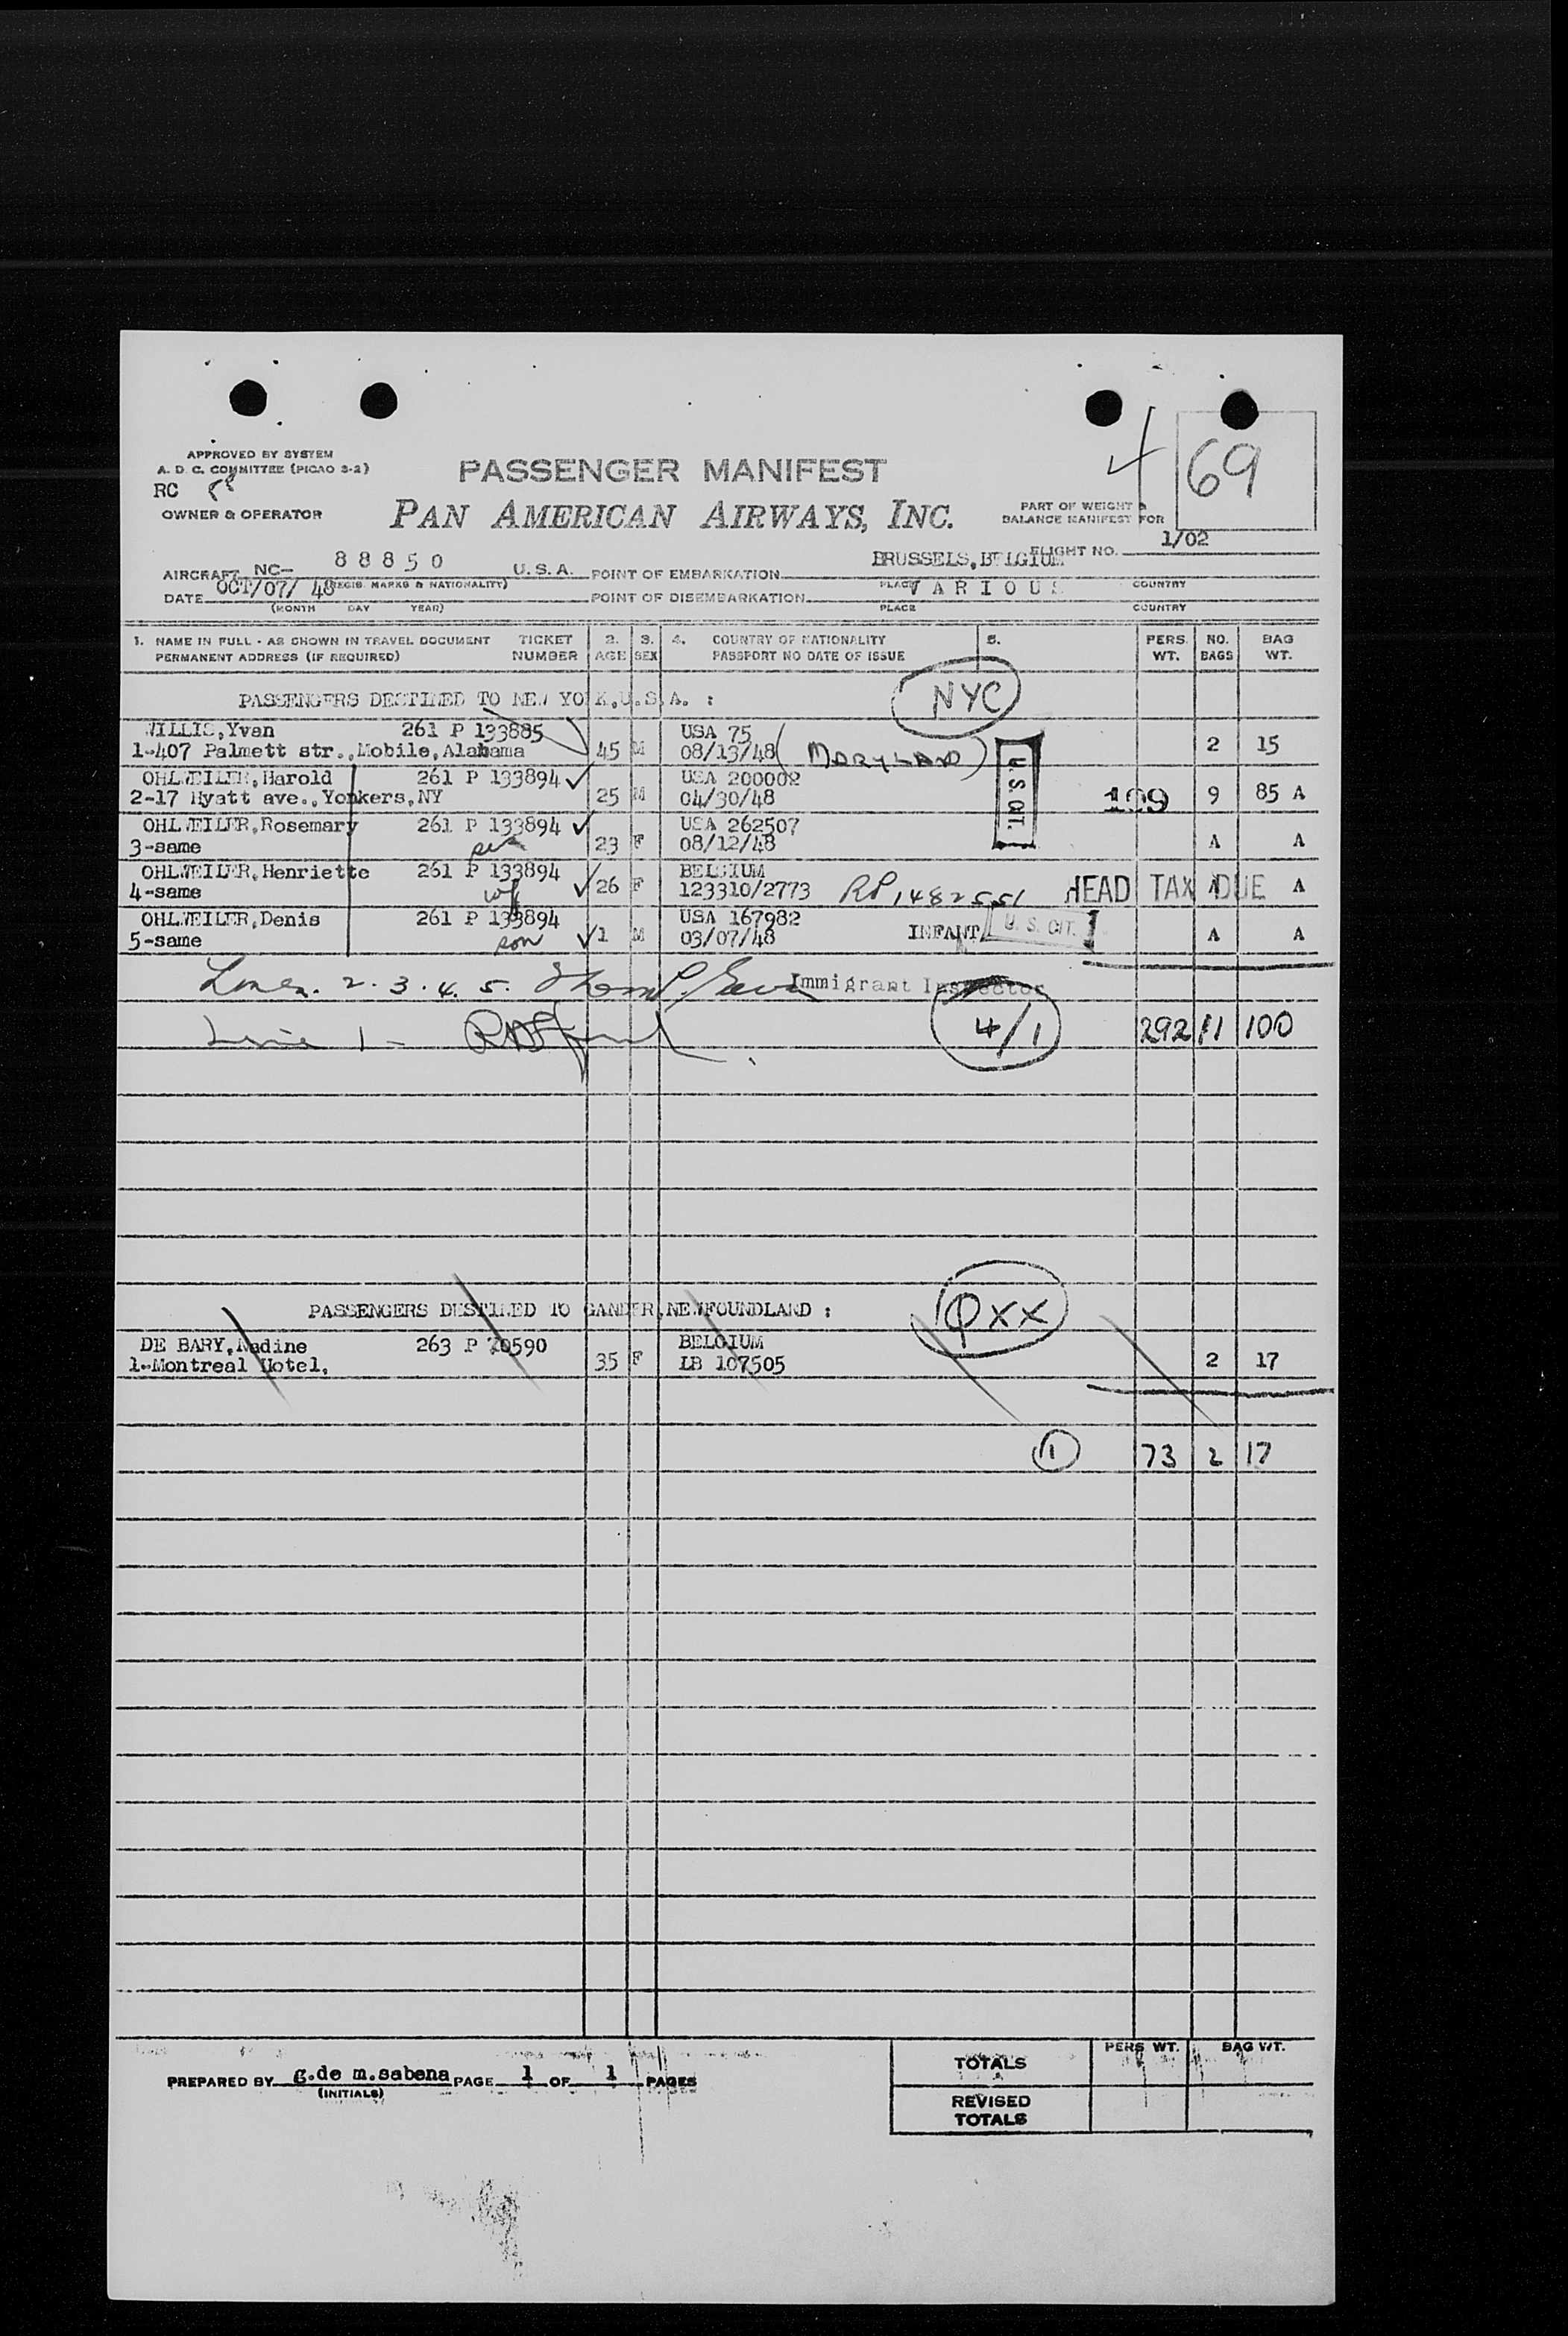 APPROVED BY SYSTEM
A. D. C. COMMITTEE (PICAO 3-2)
RC
OWNER & OPERATOR
PASSENGER MANIFEST
PAN AMERICAN AIRWAYS, INC.
4
69
PART OF WEIGHT &
BALANCE MANIFEST FOR
FLIGHT NO. 1/02
AIRCRAFT NC- 88850 U.S.A. POINT OF EMBARKATION BRUSSELS,BELGIUM
(REGIS. MARKS & NATIONALITY) PLACE COUNTRY
DATE OCT/07/ 48 POINT OF DISEMBARKATION VARIOUS
(MONTH DAY YEAR) PLACE COUNTRY
1. NAME IN FULL - AS SHOWN IN TRAVEL DOCUMENT TICKET 2. 3. 4. COUNTRY OF NATIONALITY 5. PERS. NO. BAG
PERMANENT ADDRESS (IF REQUIRED) NUMBER AGE SEX PASSPORT NO DATE OF ISSUE WT. BAGS WT.
PASSENGERS DESTINED TO NEW YORK,U.S.A. : NYC
WILLIS,Yvan 261 P 133885 USA 75
1-407 Palmett str.,Mobile,Alabama 45 M 08/13/48 (MARYLAND) U.S. CIT. 2 15
OHLWEILER,Harold 261 P 133894 USA 200002
2-17 Hyatt ave.,Yonkers,NY 25 M 04/30/48 199 9 85 A
OHLWEILER,Rosemary 261 P 133894 USA 262507
3-same 23 F 08/12/48 A A
OHLWEILER,Henriette 261 P 133894 BELGIUM
4-same wf 26 F 123310/2773 RP 1482551 HEAD TAX DUE A A
OHLWEILER,Denis 261 P 133894 USA 167982
5-same son 1 M 03/07/48 INFANT U. S. CIT. A A
Lines. 2. 3. 4. 5. Immigrant Inspector
Line 1 - 4/1 292 11 100
PASSENGERS DESTINED TO GANDER,NEWFOUNDLAND : QXX
DE BARY,Nadine 263 P 70590 BELGIUM
1-Montreal Hotel, 35 F LB 107505 2 17
1 73 2 17
PREPARED BY g.de m.sabena PAGE 1 OF 1 PAGES
(INITIALS)
PERS WT. BAG WT.
TOTALS
REVISED
TOTALS